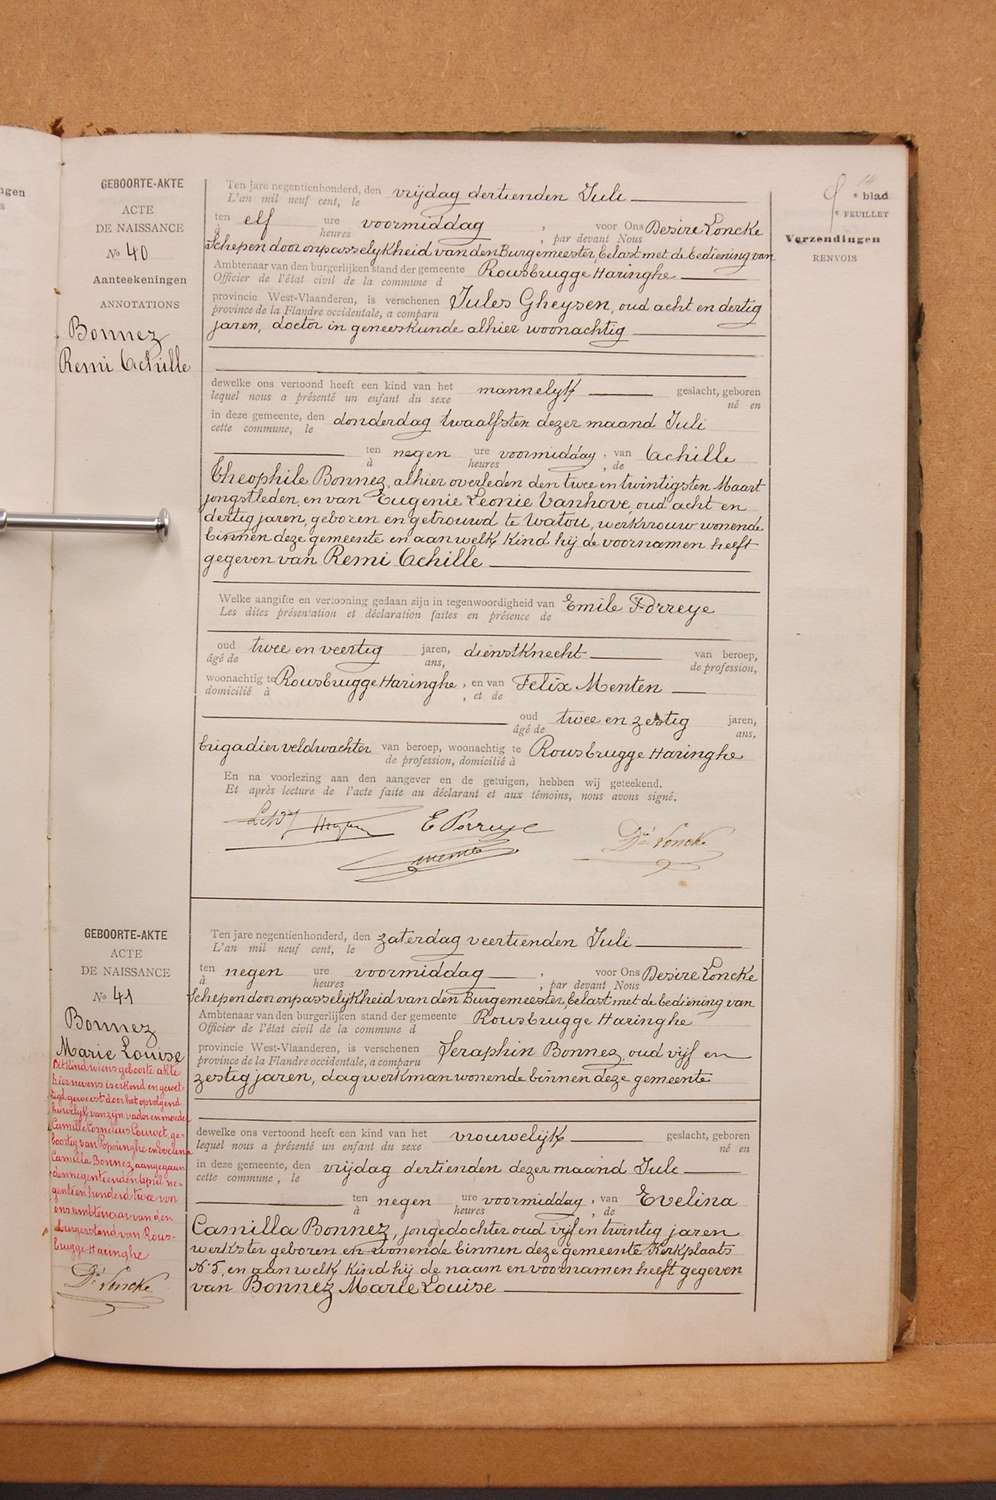 GEBOORTE-AKTE
ACTE
DE NAISSANCE
No 40
Aanteekeningen
ANNOTATIONS
Bonnez
Remi Achille
Ten jare negentienhonderd, den vrijdag dertienden Juli
L'an mil neuf cent, le
ten elf ure voormiddag , voor Ons Desiré Loncke
à heures , par devant Nous
Schepen door onpasselijkheid van den Burgemeester, belast met de bediening van
Ambtenaar van den burgerlijken stand der gemeente Rousbrugge Haringhe
Officier de l'état civil de la commune d
provincie West-Vlaanderen, is verschenen Jules Gheysen, oud acht en dertig
province de la Flandre occidentale, a comparu
jaren, doctor in geneeskunde alhier woonachtig
dewelke ons vertoond heeft een kind van het mannelyk geslacht, geboren
lequel nous a présenté un enfant du sexe né en
in deze gemeente, den donderdag twaalfsten dezer maand Juli
cette commune, le
ten negen ure voormiddag , van Achille
à heures , de
Theophile Bonnez, alhier overleden den twee en twintigsten Maart
jongstleden, en van Eugenie Leonie Vanhove, oud acht en
dertig jaren, geboren en getrouwd te Watou, werkvrouw wonende
binnen deze gemeente en aan welk kind hij de voornamen heeft
gegeven van Remi Achille
Welke aangifte en vertooning gedaan zijn in tegenwoordigheid van Emile Dorreye
Les dites présentation et déclaration faites en présence de
oud twee en veertig jaren, dienstknecht van beroep,
âgé de ans, de profession,
woonachtig te Rousbrugge Haringhe , en van Felix Menten
domicilié à , et de
oud twee en zestig jaren,
âgé de ans,
brigadier veldwachter van beroep, woonachtig te Rousbrugge Haringhe
de profession, domicilié à
En na voorlezing aan den aangever en de getuigen, hebben wij geteekend.
Et après lecture de l'acte faite au déclarant et aux témoins, nous avons signé.
Dré Loncke
GEBOORTE-AKTE
ACTE
DE NAISSANCE
No 41
Bonnez
Marie Louise
Dit kind wiens geboorte akte
hiernevens is erkend en gewet-
tigd geweest door het opvolgend
huwelijk van zijn vader en moeder
Camille Cornelius Louwet, ge-
boortig van Poperinghe en Evelina
Camilla Bonnez, aangegaan
den negentienden april ne-
gentien honderd twee voor
ons ambtenaar van den
burgerstand van Rous-
brugge-Haringhe
Dré Loncke
Ten jare negentienhonderd, den zaterdag veertienden Juli
L'an mil neuf cent, le
ten negen ure voormiddag , voor Ons Desiré Loncke
à heures , par devant Nous
Schepen door onpasselijkheid van den Burgemeester, belast met de bediening van
Ambtenaar van den burgerlijken stand der gemeente Rousbrugge Haringhe
Officier de l'état civil de la commune d
provincie West-Vlaanderen, is verschenen Seraphin Bonnez, oud vijf en
province de la Flandre occidentale, a comparu
zestig jaren, dagwerkman wonende binnen deze gemeente
dewelke ons vertoond heeft een kind van het vrouwelijk geslacht, geboren
lequel nous a présenté un enfant du sexe né en
in deze gemeente, den vrijdag dertienden dezer maand Juli
cette commune, le
ten negen ure voormiddag , van Evelina
à heures , de
Camilla Bonnez, jongedochter oud vijf en twintig jaren
werkster geboren en wonende binnen deze gemeente Kerkplaats
No 5, en aan welk kind hij de naam en voornamen heeft gegeven
van Bonnez Marie Louise
e blad
e FEUILLET
Verzendingen
RENVOIS